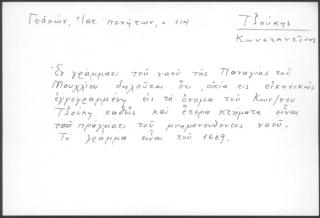 Γεδεών, Πατ. πινήτων, σ 114
Τζούκης
Κωνσταντῖνος
Ἐν γράμματι τοῦ ναοῦ τῆς Παναγίας τοῦ
Μουχλίου δηλοῦται ὅτι, οἰκία τις εἰκονικῶς
ἐγγεγραμμένη εἰς τὸ ὄνομα τοῦ Κων/νου
Τζούκη καθὼς καὶ ἕτερα κτήματα εἶναι
πράγματι τοῦ μνημονευθέντος ναοῦ.
Τὸ γράμμα εἶναι τοῦ 1669.